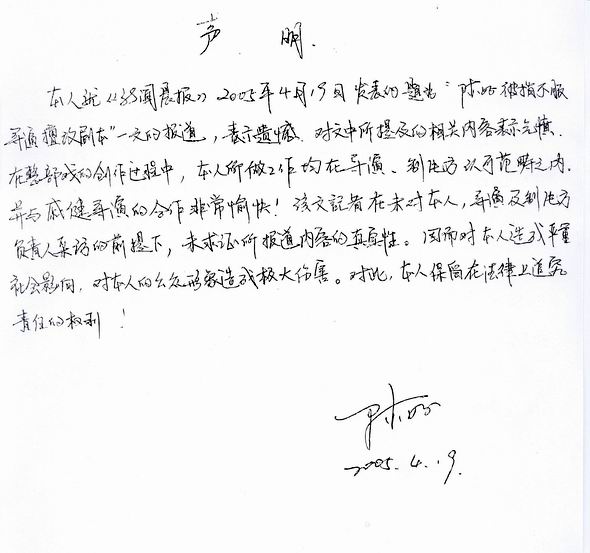 声 明.
本人就《新闻晨报》2005年4月19日发表的题为"陈好被指不服
导演擅改剧本"一文的报道，表示遗憾.对文中所提及的相关内容表示气愤.
在整部戏的创作过程中，本人所做工作均在导演、制片方认可范畴之内.
并与戚健导演的合作非常愉快！该文記者在未对本人，导演及制片方
负责人采访的前提下，未求证所报道内容的真实性。因而对本人造成严重
社会影响，对本人的公众形象造成极大伤害。对此，本人保留在法律上追究
责任的权利！
陈好
2005.4.19.